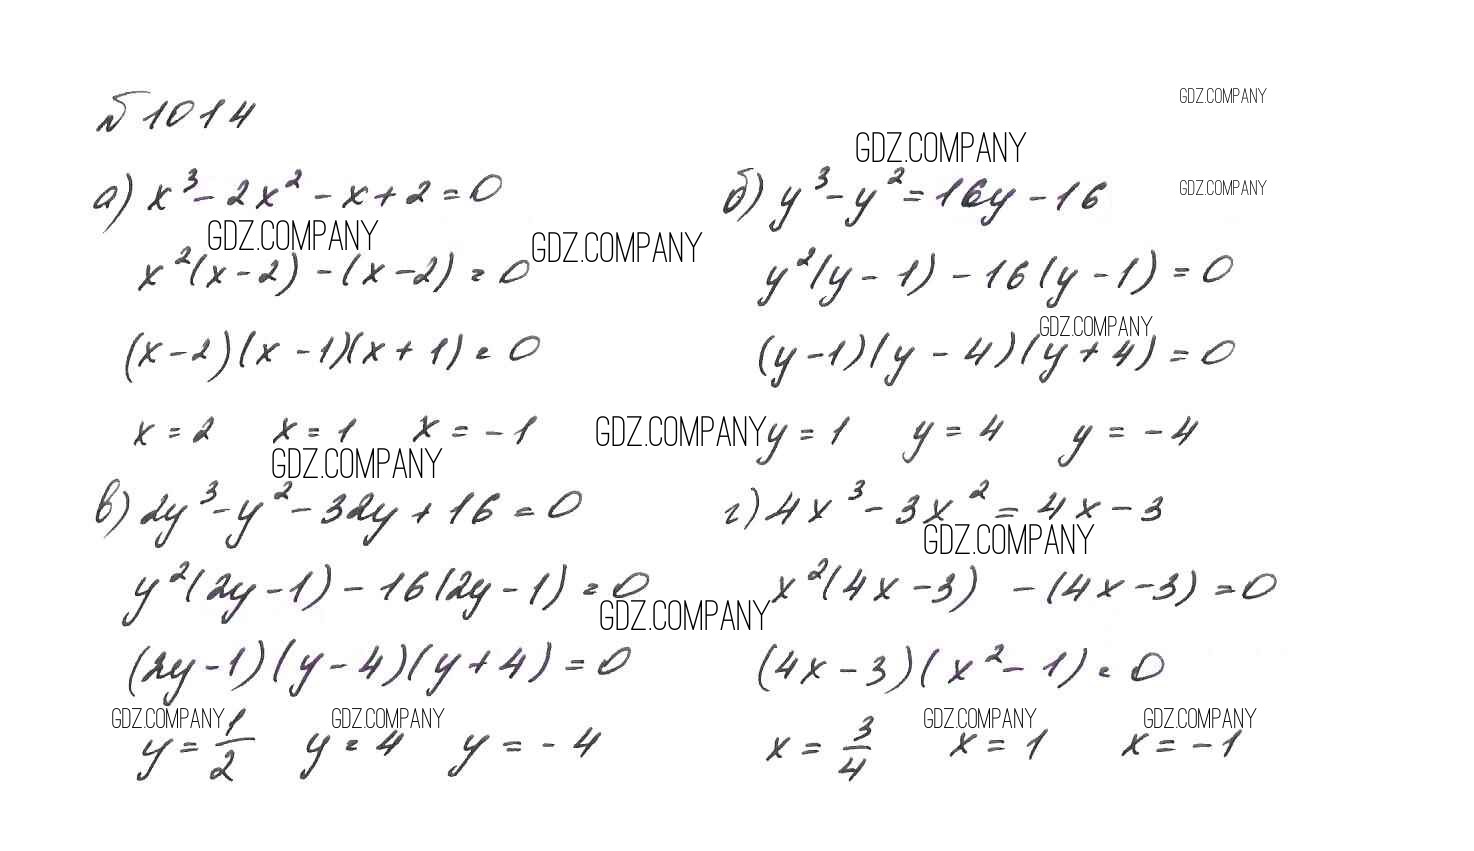 № 1014
GDZ.COMPANY
GDZ.COMPANY
а) x³ - 2x² - x + 2 = 0
б) y³ - y² = 16y - 16
GDZ.COMPANY
GDZ.COMPANY
GDZ.COMPANY
x²(x - 2) - (x - 2) = 0
y²(y - 1) - 16(y - 1) = 0
GDZ.COMPANY
(x - 2)(x - 1)(x + 1) = 0
(y - 1)(y - 4)(y + 4) = 0
x = 2 x = 1 x = -1
GDZ.COMPANY
y = 1 y = 4 y = -4
GDZ.COMPANY
в) 2y³ - y² - 32y + 16 = 0
г) 4x³ - 3x² = 4x - 3
GDZ.COMPANY
y²(2y - 1) - 16(2y - 1) = 0
x²(4x - 3) - (4x - 3) = 0
GDZ.COMPANY
(2y - 1)(y - 4)(y + 4) = 0
(4x - 3)(x² - 1) = 0
GDZ.COMPANY GDZ.COMPANY GDZ.COMPANY GDZ.COMPANY
y = 1/2 y = 4 y = -4
x = 3/4 x = 1 x = -1